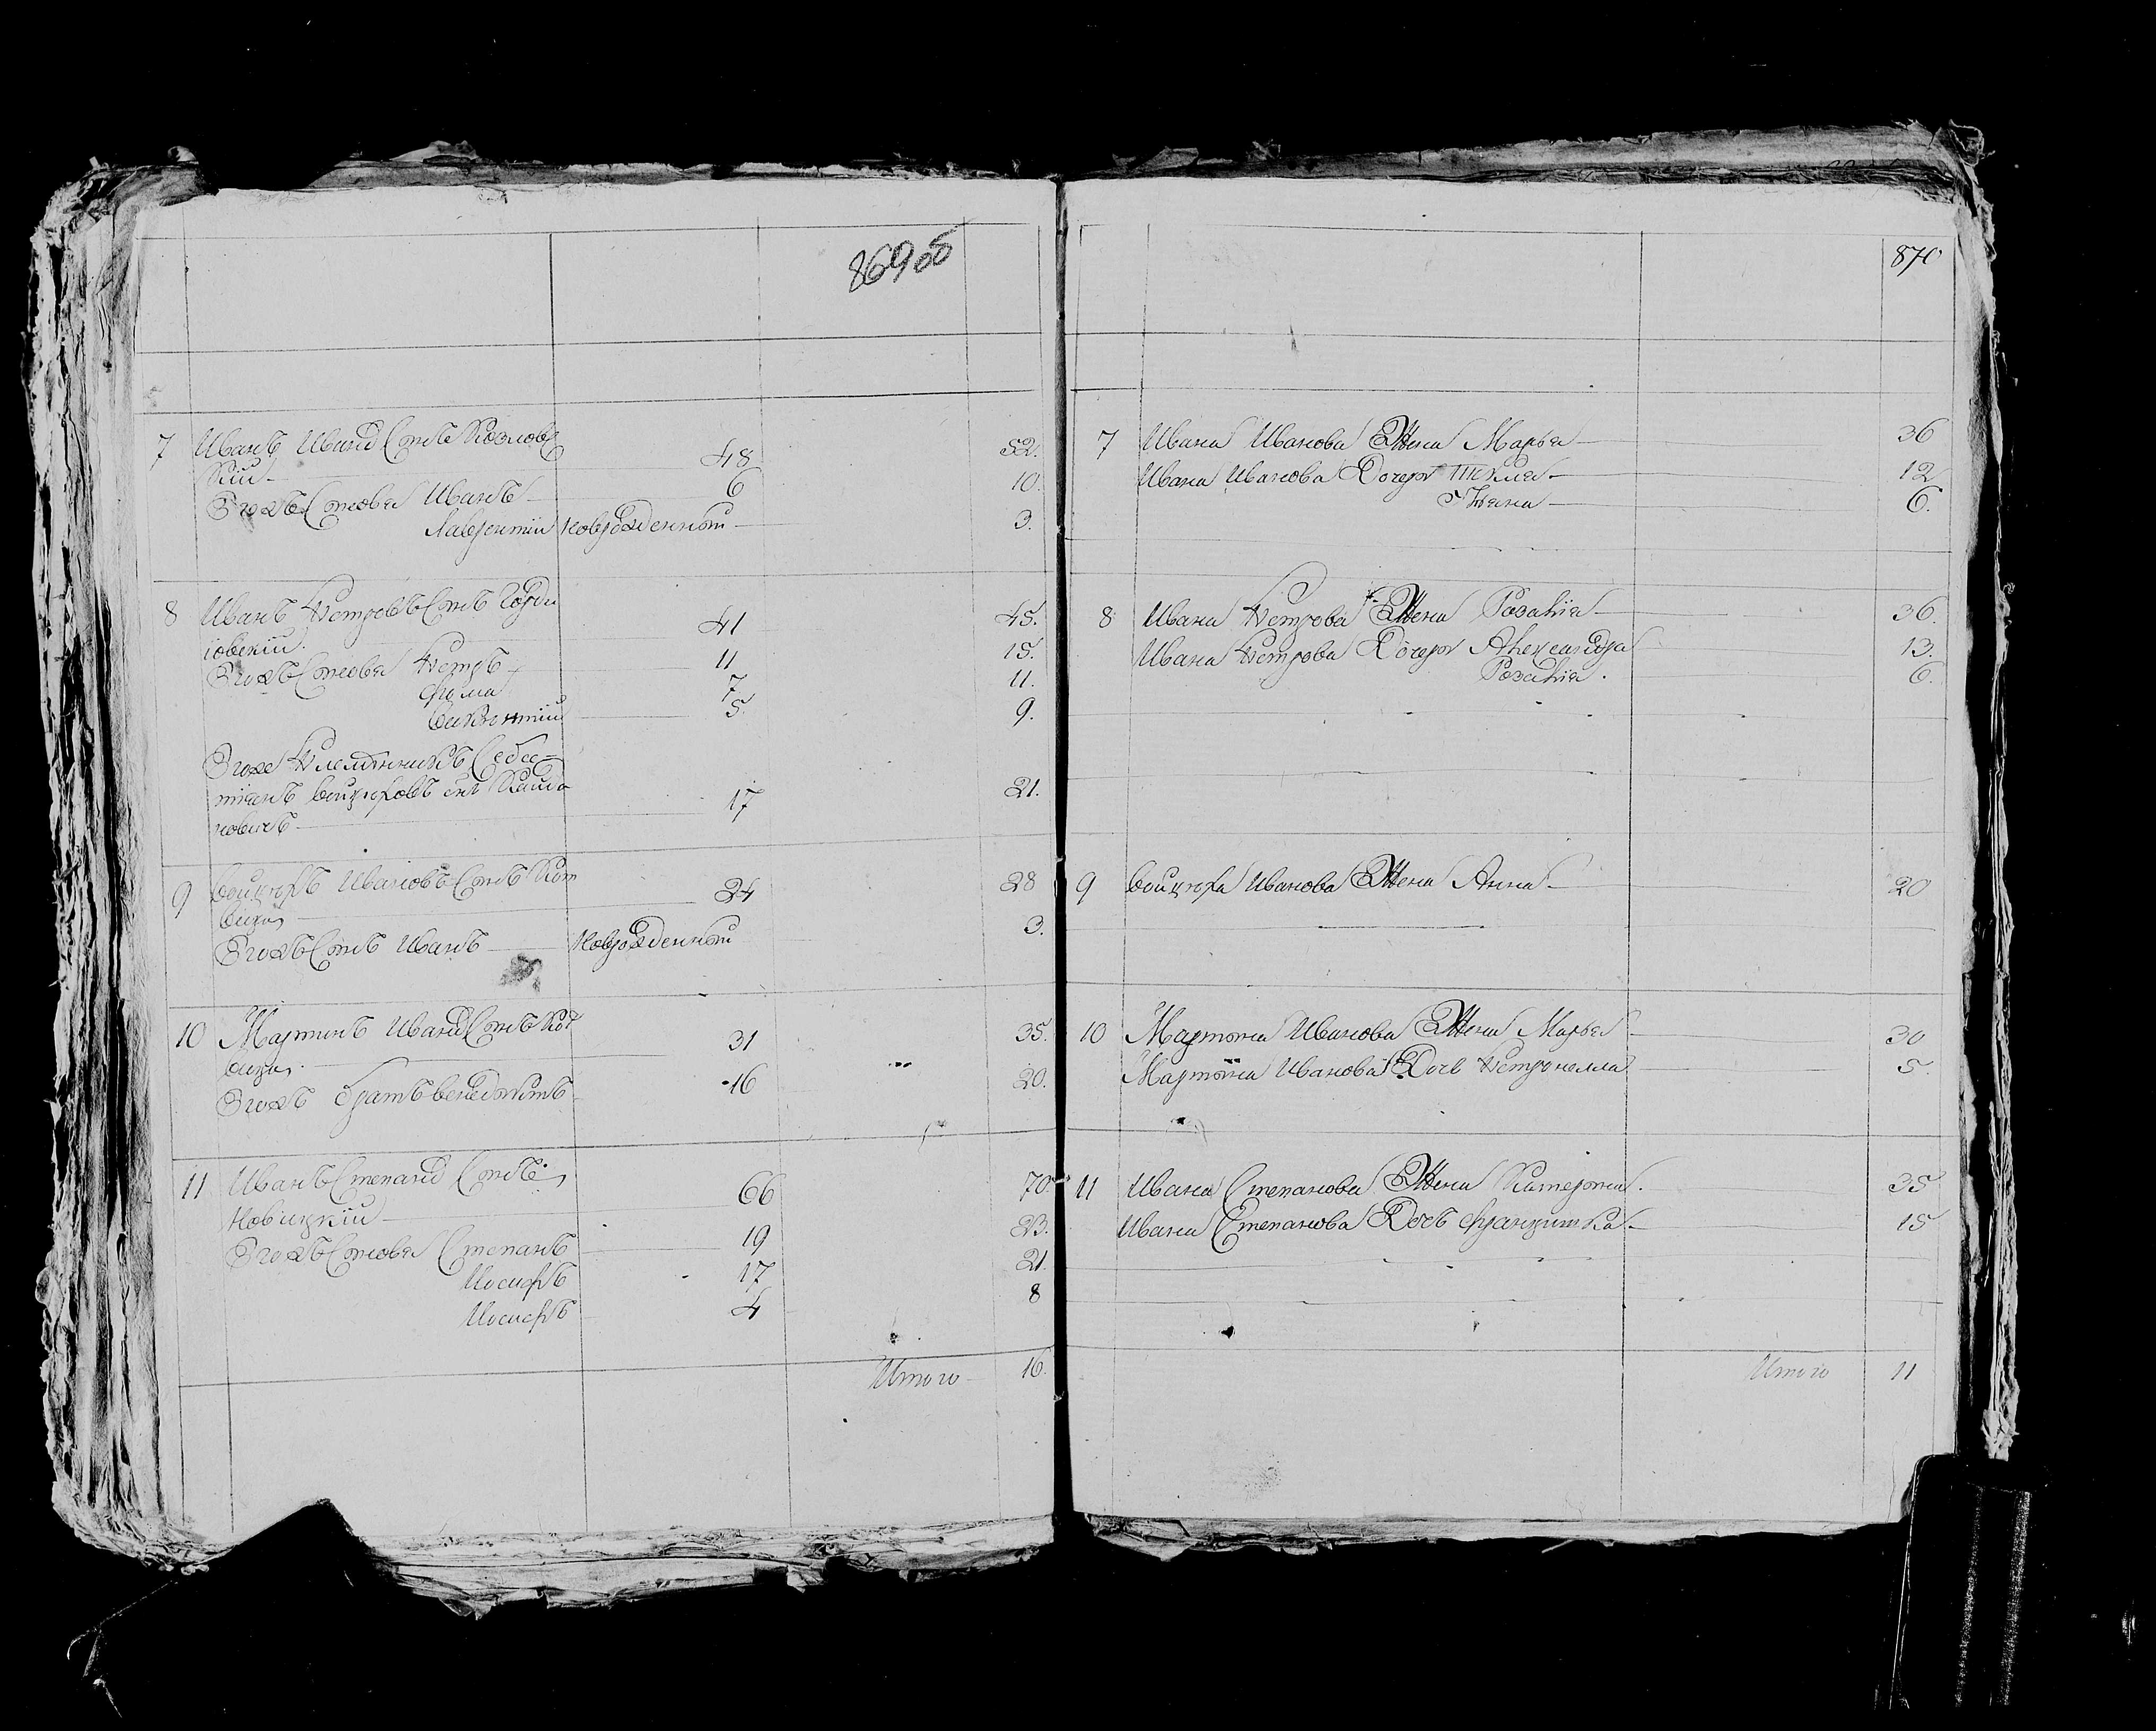 869об
7 Иванъ Иванов Сынъ Козловс
кий 48 52.
Егожъ Сыновья Иванъ 6 10.
Лаврентий новорожденный 3.
8 Иванъ Петровъ Сынъ
41 45.
Егожъ Сыновья Петръ 11 15.
Фома 7 11.
Викентий 5 9.
Егоже Племянникъ Себес-
тианъ Войцеховъ сынъ
новичъ 17 21.
9 Войцехъ Ивановъ Сынъ
24 28
Егожъ Сынъ Иванъ Новорожденный 3.
10 Мартинъ Иванов Сынъ
31 35.
Егожъ братъ Венедиктъ 16 20.
11 Иванъ Степанов Сынъ
Новицкий 66 70.
Егожъ Сыновья Степанъ 19 23.
Иосифъ 17 21.
Иосифъ 4 8
Итого 16.
870
7 Ивана Иванова Жена Марья 36
Ивана Иванова Дочери Текля 12
6.
8 Ивана Петрова Жена Розалия 36.
Ивана Петрова Дочери Александра 13.
Розалия. 6.
9 Войцеха Иванова Жена Анна 20
10 Мартина Иванова Жена Марья 30
Мартина Иванова Дочь Петронелла 5.
11 Ивана Степанова Жена Катерина. 35
Ивана Степанова Дочь Францишка 15
Итого 11